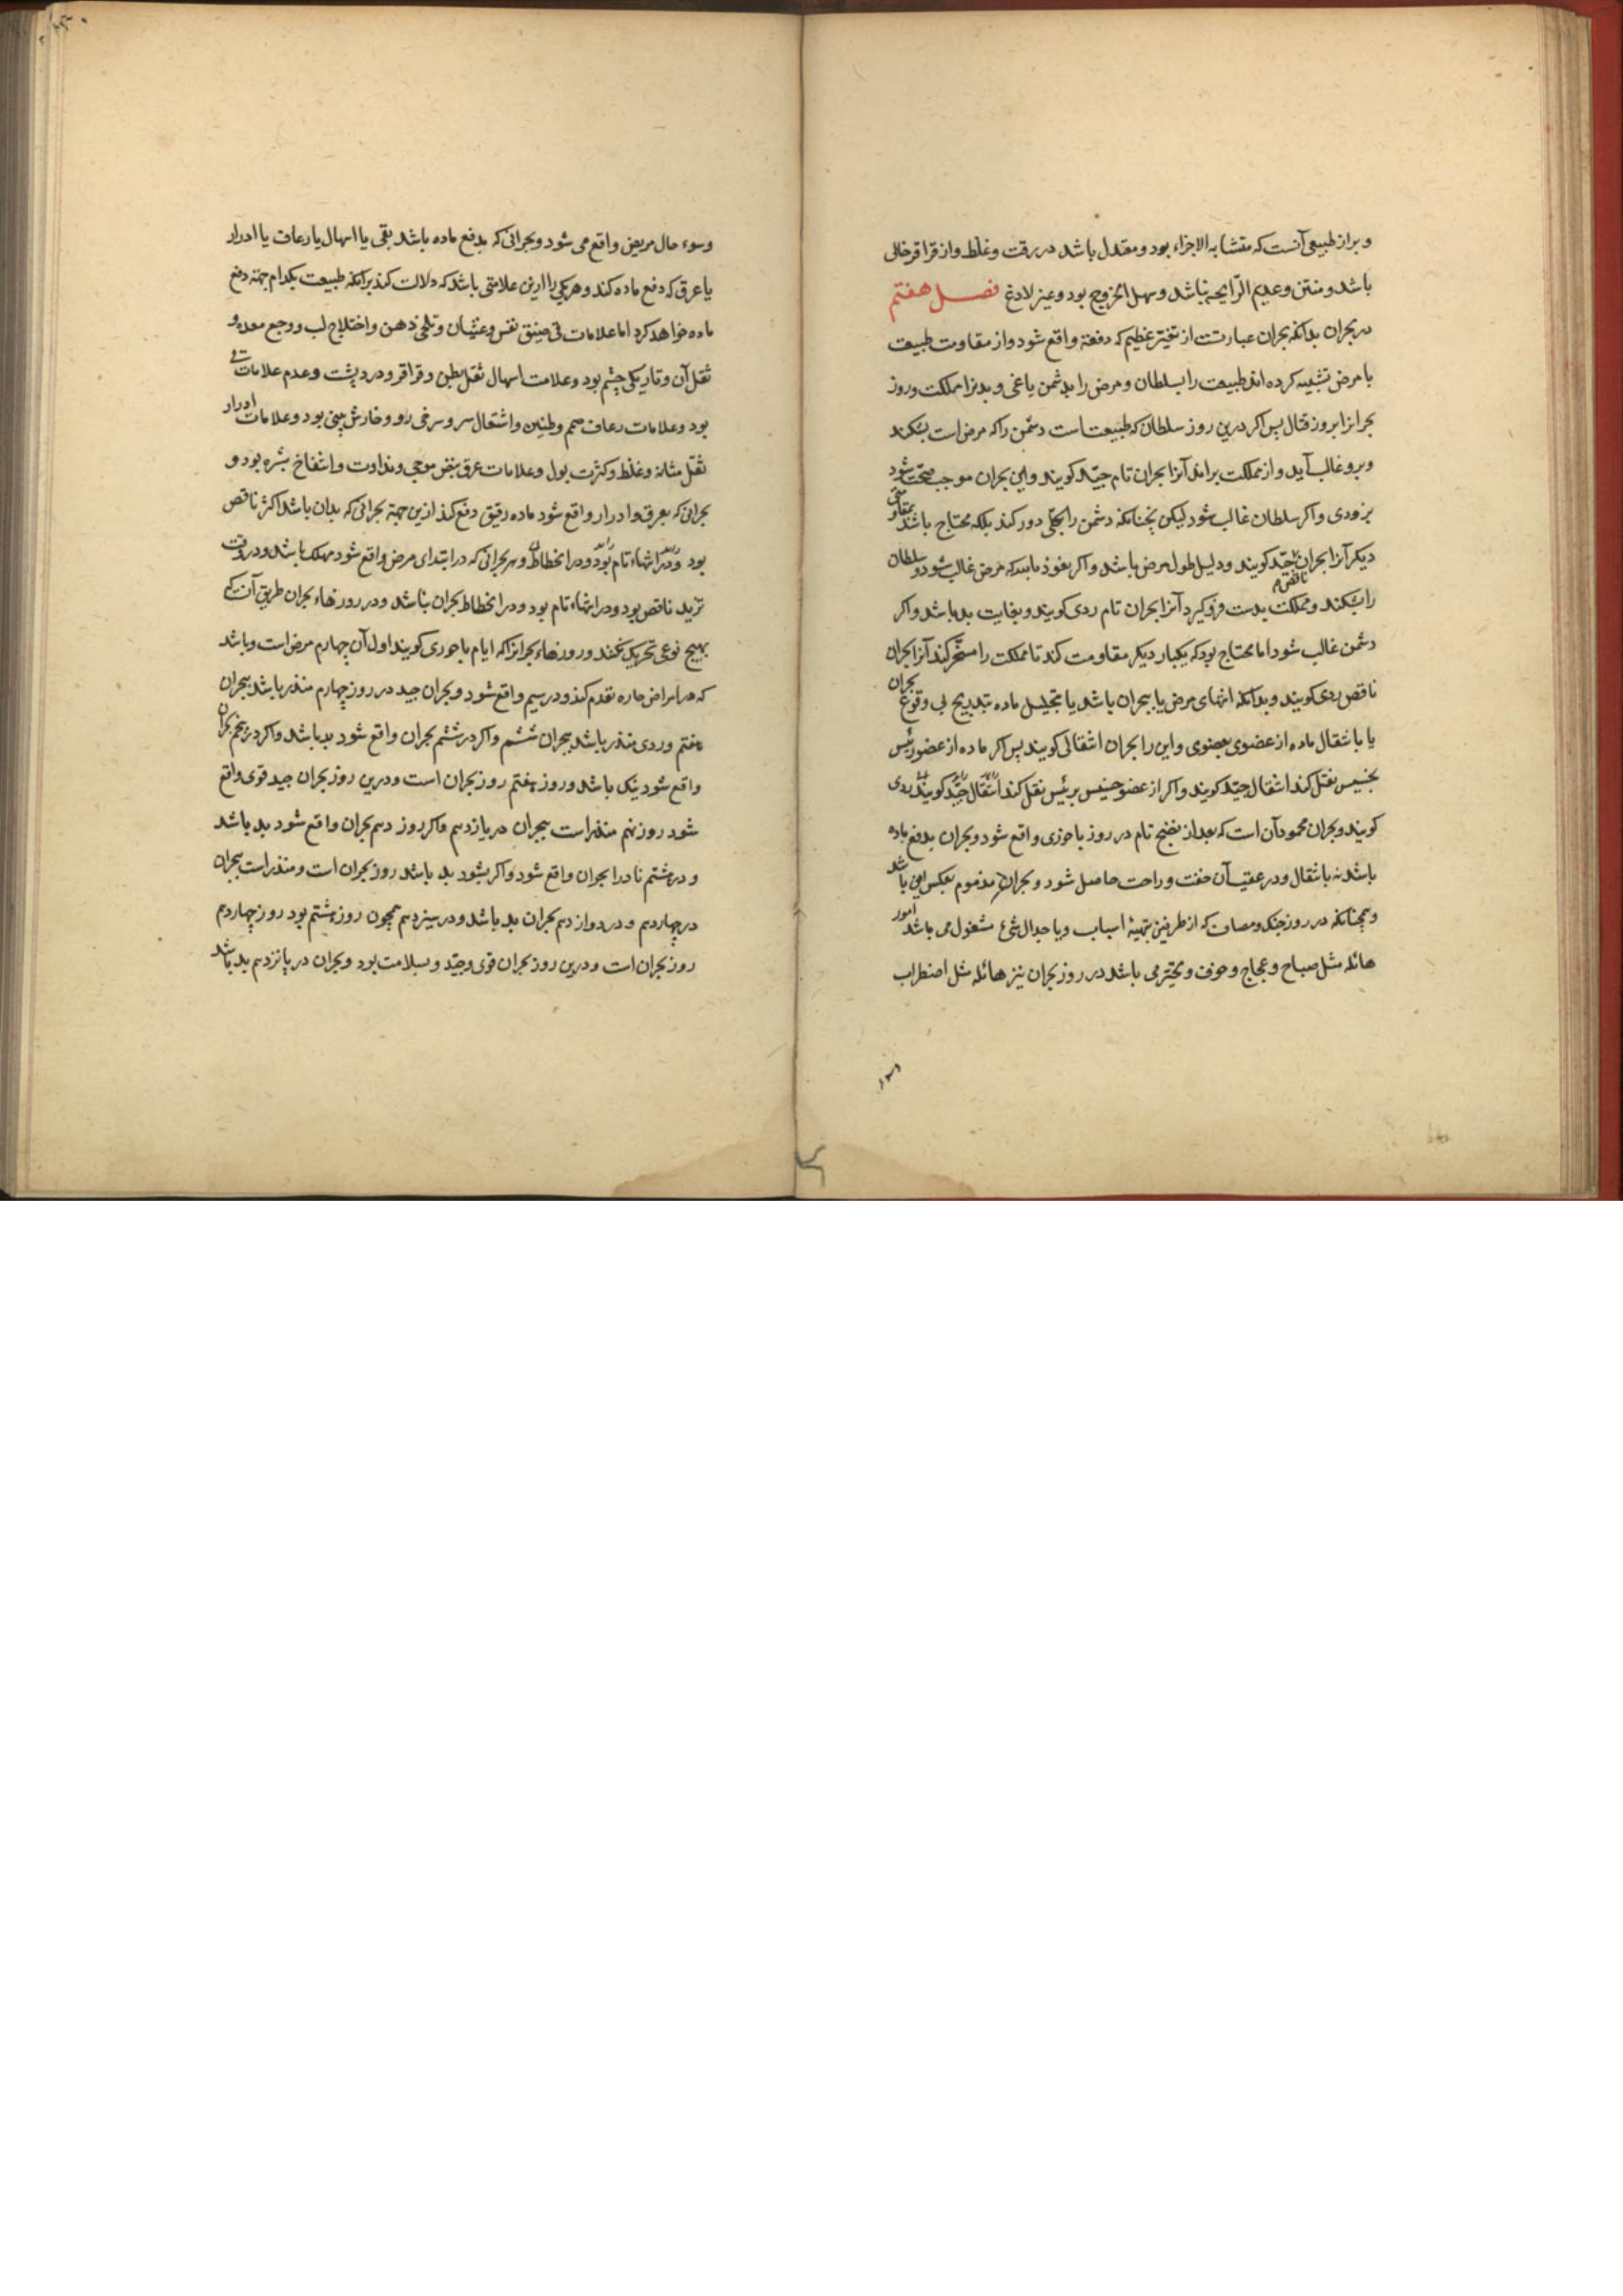 و براز طبیعی آنست که متشابه الاجزاء بود و معتدل باشد در رقت و غلظ و از قراقر خالی
باشد و منتن و عدیم الرّایحه نباشد و سهل الخروج بود و غیر لادغ فصل هفتم
در بحران بدانکه بحران عبارتست از تغیّر عظیم که دفعة واقع شود و از مقاومت طبیعت
با مرض تشبیه کرده اند طبیعت را بسلطان و مرض را بدشمن یاغی و بدنرا مملکت و روز
بحرانرا بروز قتال پس اکر درین روز سلطان که طبیعتست دشمن را که مرض است بشکند
و برو غالب آید و از مملکت براند آنرا بحران تام جیّد کویند و این بحران موجب صحّت شود
بزودی و اکر سلطان غالب شود لیکن نچنانکه دشمن را بکلی دور کند بلکه محتاج باشد بمقاومتی
دیکر آنرا بحران ناقص جیّد کویند و دلیل طول مرض باشد و اکر نعوذ بالله که مرض غالب شود و سلطان
را بشکند و مملکت بدست فرو کیرد آنرا بحران تام ردی کویند و بغایت بد باشد و اکر
دشمن غالب شود اما محتاج بود که یکبار دیکر مقاومت کند تا مملکت را مسخّر کند آنرا بحران
ناقص ردی کویند و بدانکه انتهای مرض یا ببحران باشد یا بتحلیل ماده بتدریج بی وقوع بحران
یا بانتقال ماده از عضوی بعضوی و این را بحران انتقالی کویند پس اکر ماده از عضو رئیس
بخسیس نقل کند انتقال جیّد کویند و اکر از عضو خسیس برئیس نقل کند انتقال جیّد کویند ردی
کویند و بحران محمود آن است که بعد از نضج تام در روز باحوری واقع شود و بحران بدفع ماده
باشد نه بانتقال و در عقیب آن خفت و راحت حاصل شود و بحران مذموم بعکس این باشد
و همچنانکه در روز جنک و مصاف که از طرفین بتهیهٔ اسباب و با جدال مشغول می باشد امور
هائله مثل صیاح و عجاج و خوف و تحیّر می باشد در روز بحران نیز هائله مثل اضطراب
وسوء
وسوء حال مریض واقع می شود و بحرانی که بدفع ماده باشد بقی یا اسهال یا رعاف یا ادرار
یا عرق که دفع ماده کند و هریکی را ازین علامتی باشد که دلالت کند برانکه طبیعت بکدام جهة دفع
ماده خواهد کرد اما علامات قی ضیق نفس و غثیان و تلخی ذهن و اختلاج لب و وجع معده و
ثقل آن و تاریکی چشم بود و علامت اسهال ثقل بطن و قراقر و درد پشت و عدم علامات قی
بود و علامات رعاف صمم و طنین و اشتعال سر و سرخی رو و خارش بینی بود و علامات ادرار
ثقل مثانه و غلظ و کثرت بول و علامات عرق نبض موجی و نداوت و انتفاخ بشره بود و
بحرانی که بعرق و ادرار واقع شود ماده رقیق دفع کند ازین جهة بحرانی که بدان باشد اکثر ناقص
بود و در انتهاء تام بود و در انحطاط و هر بحرانی که در ابتدای مرض واقع شود مهلک باشد و در وقت
تزید ناقص بود و در انتهاء تام بود و در انحطاط بحران نباشد و در روزهاء بحران طریق آن که
بهیچ نوعی تحریک نکنند و روزهاء بحرانرا که ایام باحوری کویند اول آن چهارم مرض است و باشد
که در امراض حاره تقدم کند و در سیم واقع شود و بحران جید در روز چهارم منذر باشد ببحران
هفتم و ردی منذر باشد ببحران ششم و اکر در ششم بحران واقع شود بد باشد و اکر در پنجم بحران
واقع شود نیک باشد و روز هفتم روز بحران است و درین روز بحران جید قوی واقع
شود روز نهم منذر است ببحران در یازدهم و اکر روز دهم بحران واقع شود بد باشد
و در هشتم نادرا بحران واقع شود و اکر بشود بد باشد روز بحران است و منذر است ببحران
در چهاردهم و در دوازدهم بحران بد باشد و در سیزدهم همچون روز هشتم بود روز چهاردهم
روز بحران است و درین روز بحران قوی و جیّد و بسلامت بود و بحران در پانزدهم بد باشد